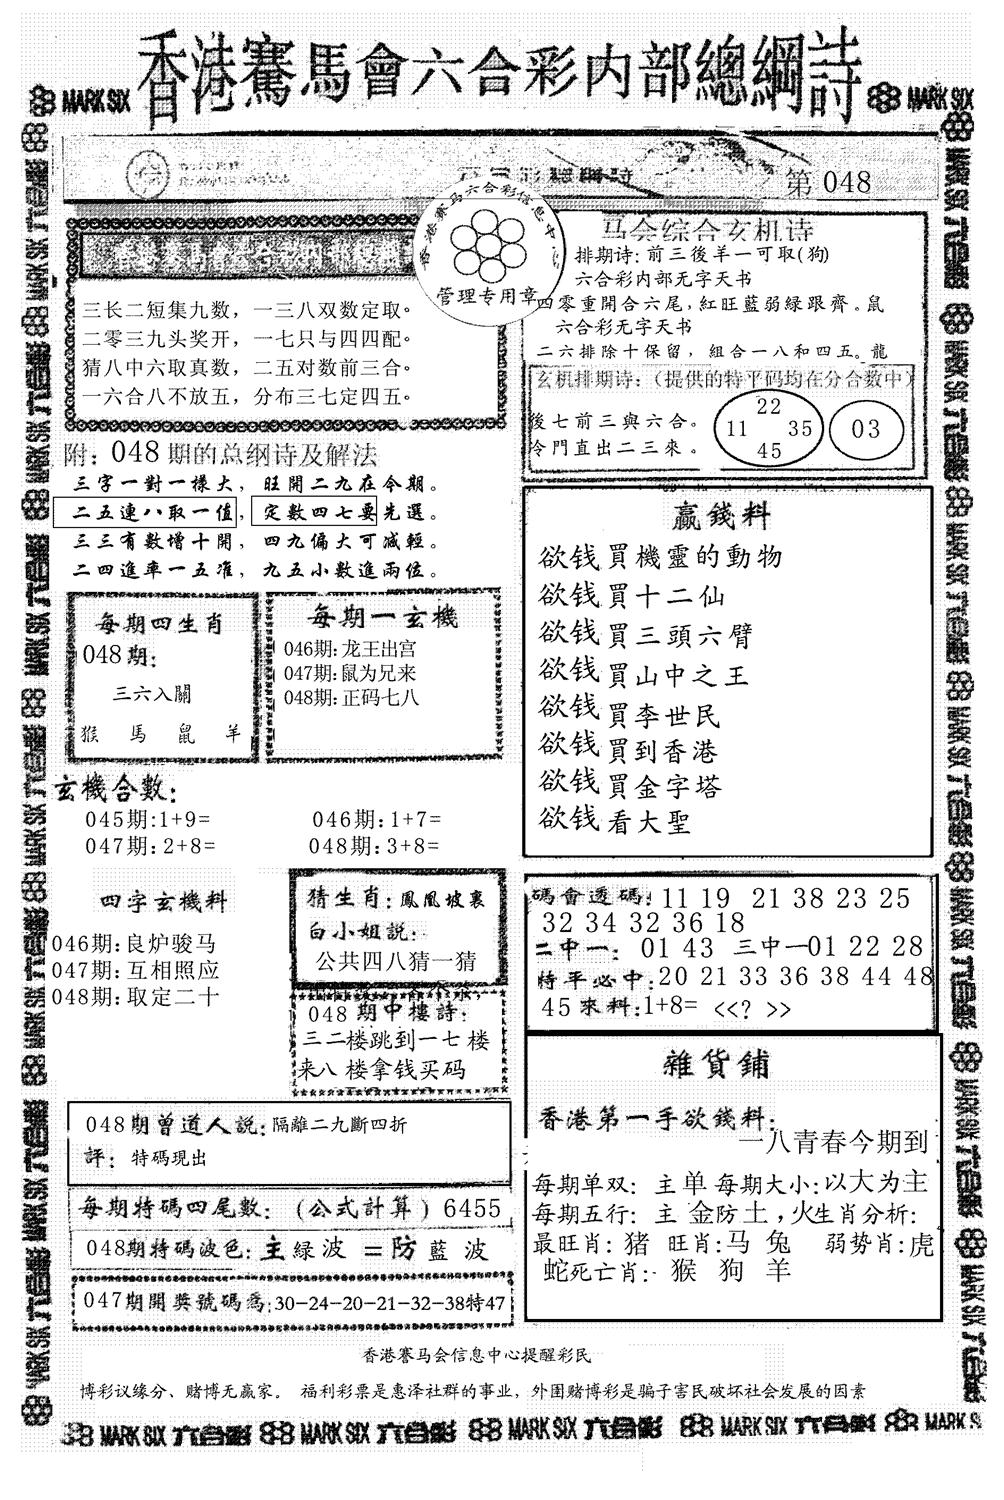 香港賽馬會六合彩内部總綱詩
MARK SIX
MARK SIX
第 048
管理专用章
三长二短集九数，一三八双数定取。
二零三九头奖开，一七只与四四配。
猜八中六取真数，二五对数前三合。
一六合八不放五，分布三七定四五。
马会综合玄机诗
排期诗：前三後羊一可取(狗)
六合彩内部无字天书
四零重開合六尾，紅旺藍弱緑跟齊。鼠
六合彩无字天书
二六排除十保留，組合一八和四五。龍
玄机排期诗：（提供的特平码均在分合数中）
後七前三與六合。
冷門直出二三來。
22
11 35
45
03
附：048期的总纲诗及解法
三字一對一樣大，旺開二九在今期。
二五連八取一值，定數四七要先選。
三三有數增十開，四九偏大可減輕。
二四進車一五准，九五小數進兩位。
每期四生肖
048期：
三六入關
猴 馬 鼠 羊
每期一玄機
046期:龙王出宫
047期:鼠为兄来
048期:正码七八
贏錢料
欲钱買機靈的動物
欲钱買十二仙
欲钱買三頭六臂
欲钱買山中之王
欲钱買李世民
欲钱買到香港
欲钱買金字塔
欲钱看大聖
玄機合數：
045期:1+9= 046期:1+7=
047期:2+8= 048期:3+8=
四字玄機料
046期:良炉骏马
047期:互相照应
048期:取定二十
猜生肖：鳳凰坡裏
白小姐説：
公共四八猜一猜
048 期中樓詩：
三二楼跳到一七 楼
来八 楼拿钱买码
碼會透碼：11 19 21 38 23 25
32 34 32 36 18
二中一：01 43 三中一01 22 28
特平必中：20 21 33 36 38 44 48
45 來料：1+8= <<? >>
048期曾道人説：隔離二九斷四折
評：特碼現出
每期特碼四尾數：(公式計算) 6455
048期特碼波色：主绿波 =防 藍 波
047期開獎號碼爲:30-24-20-21-32-38特47
雜貨鋪
香港第一手欲錢料：
一八青春今期到
每期单双：主单 每期大小:以大为主
每期五行：主 金防土，火生肖分析：
最旺肖：猪 旺肖:马 兔 弱势肖:虎
蛇死亡肖:- 猴 狗 羊
香港賽马会信息中心提醒彩民
博彩议缘分、赌博无赢家。 福利彩票是惠泽社群的事业，外围赌博彩是骗子害民破坏社会发展的因素
MARK SIX 六合彩 MARK SIX 六合彩 MARK SIX 六合彩 MARK SIX 六合彩 MARK SIX